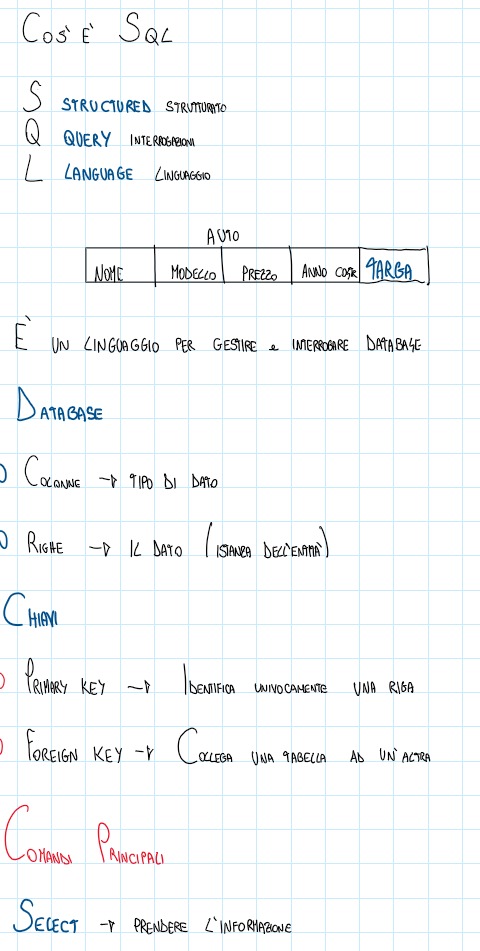 COS'È È SQL
S STRUCTURED STRUTTURATO
Q QUERY INTERROGAZIONI
L LANGUAGE LINGUAGGIO
AUTO
NOME MODELLO PREZZO ANNO COSTR TARGA
È UN LINGUAGGIO PER GESTIRE e INTERROGARE DATABASE
DATABASE
COLONNE → TIPO DI DATO
RIGHE → IL DATO (ISTANZA DELL'ENTITÀ)
CHIAVI
PRIMARY KEY → IDENTIFICA UNIVOCAMENTE UNA RIGA
FOREIGN KEY → COLLEGA UNA TABELLA AD UN'ALTRA
COMANDI PRINCIPALI
SELECT → PRENDERE L'INFORMAZIONE